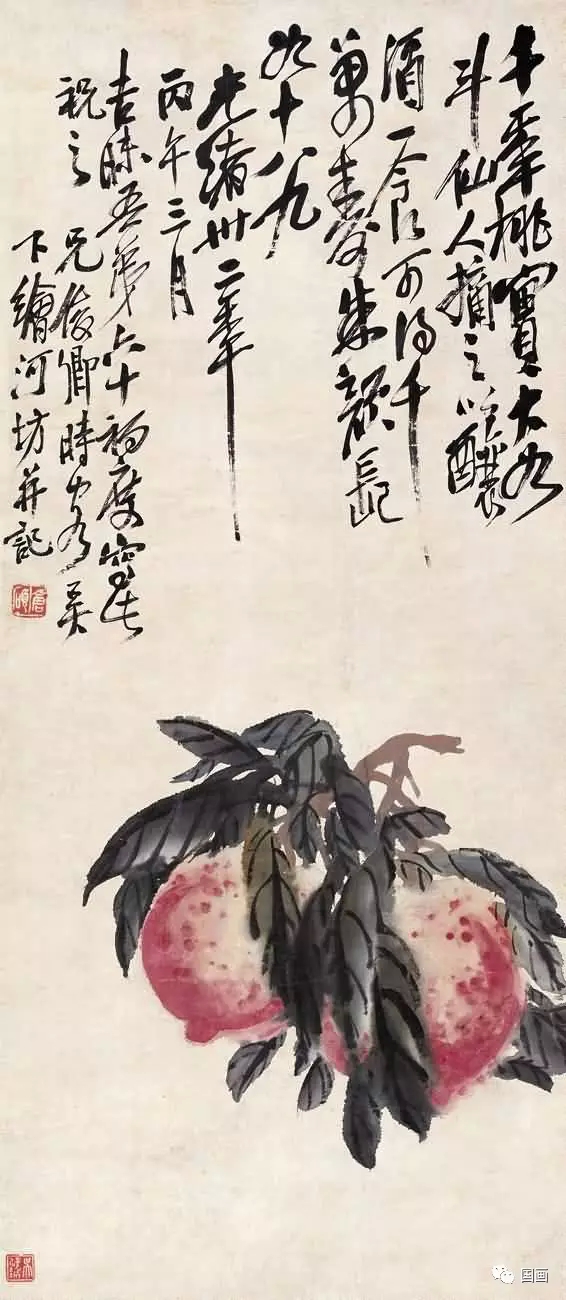 千年桃實大如
斗仙人摘之以釀
酒一食可得千
萬壽朱顏長
如十八九
光緒卅二年
丙午三月
吉吾弟六十初度寫此
祝之 兄俊卿時客吳
下繪河坊并記
倉碩
国画